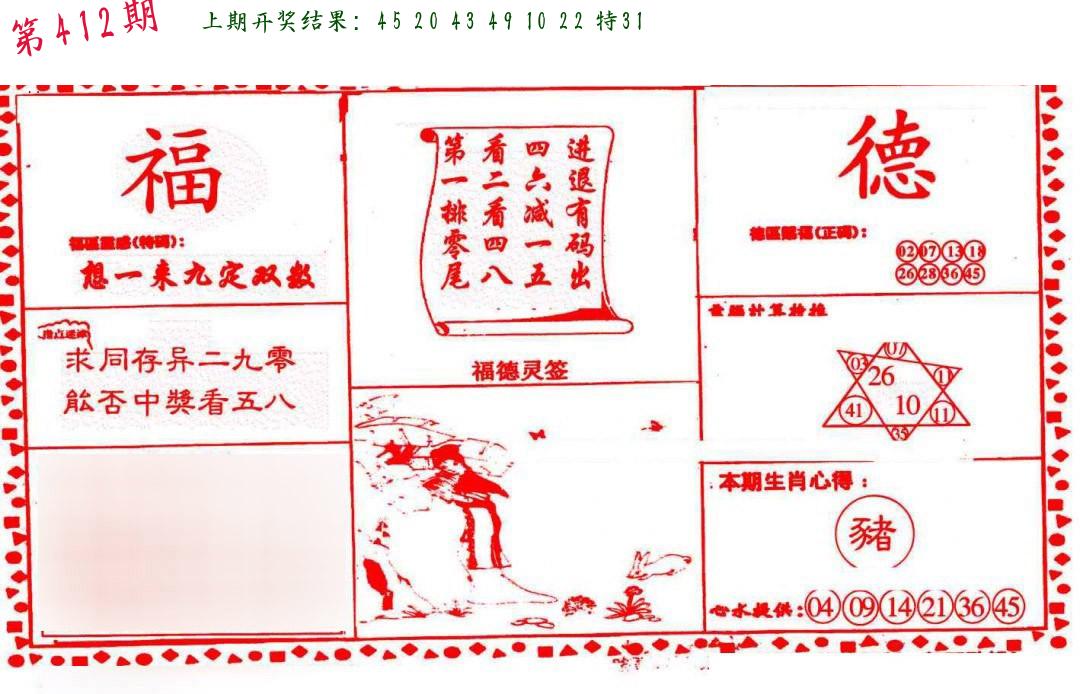 第412期
上期开奖结果：45 20 43 49 10 22 特31
福
福區靈感(特码)：
想一来九定双数
指点迷津
求同存异二九零
能否中獎看五八
进退有码出
四六减一五
看二看四八
第一排零尾
福德灵签
德
德區賜福(正码)：
02 07 13 18
26 28 36 45
電腦計算檢推
03 07 1
26
10
41 11
35
本期生肖心得：
豬
心水提供：04 09 14 21 36 45